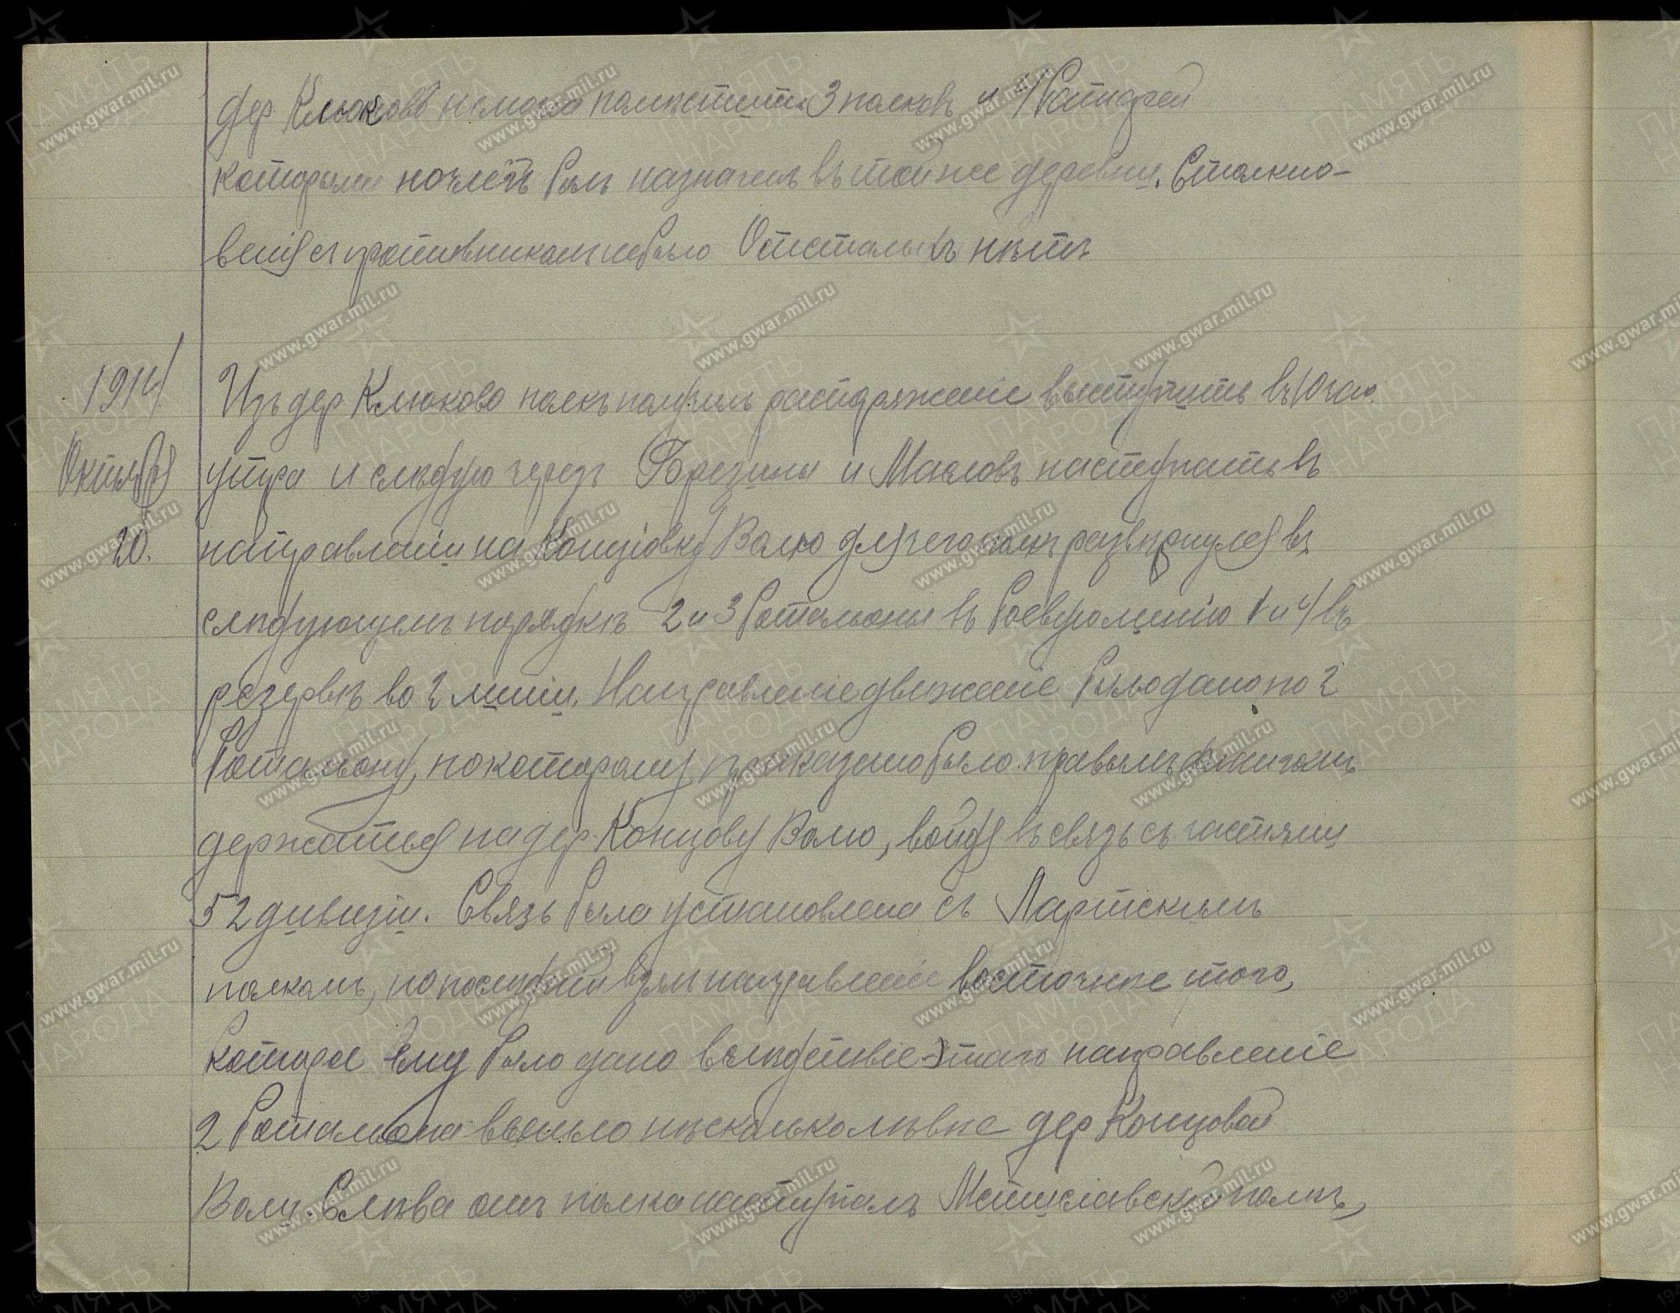 дер Клюково не могла помѣстить 3 полковъ и 4 батарей
которымъ ночлегъ былъ назначенъ въ той же деревни. Столкно-
венія съ противникомъ не было Отсталыхъ нѣтъ
1914
Октября
20.
Изъ дер Клюково полкъ получилъ распоряженіе выступить въ 10 час.
утра и слѣдуя черезъ Брезины и Маковъ наступать въ
направленіи на Концовку Волю для чего полкъ развернулся въ
слѣдующемъ порядкѣ 2 и 3 баталіоны въ боевую линію 1 и 4 въ
резервѣ во 2 линіи. Направленіе движеніе было дано по 2
баталіону, по которому приказано было правымъ флангомъ
держаться на дер. Концову Волю, войдя въ связь съ частями
52 дивизіи. Связь была установлена съ
полкомъ, но послѣдній взялъ направленіе восточнѣе того,
которое ему было дано вслѣдствіе этого направленіе
2 баталіона вышло нѣсколько лѣвѣе дер Концовой
Воли. Слѣва отъ полка наступалъ Мстиславскій полкъ,